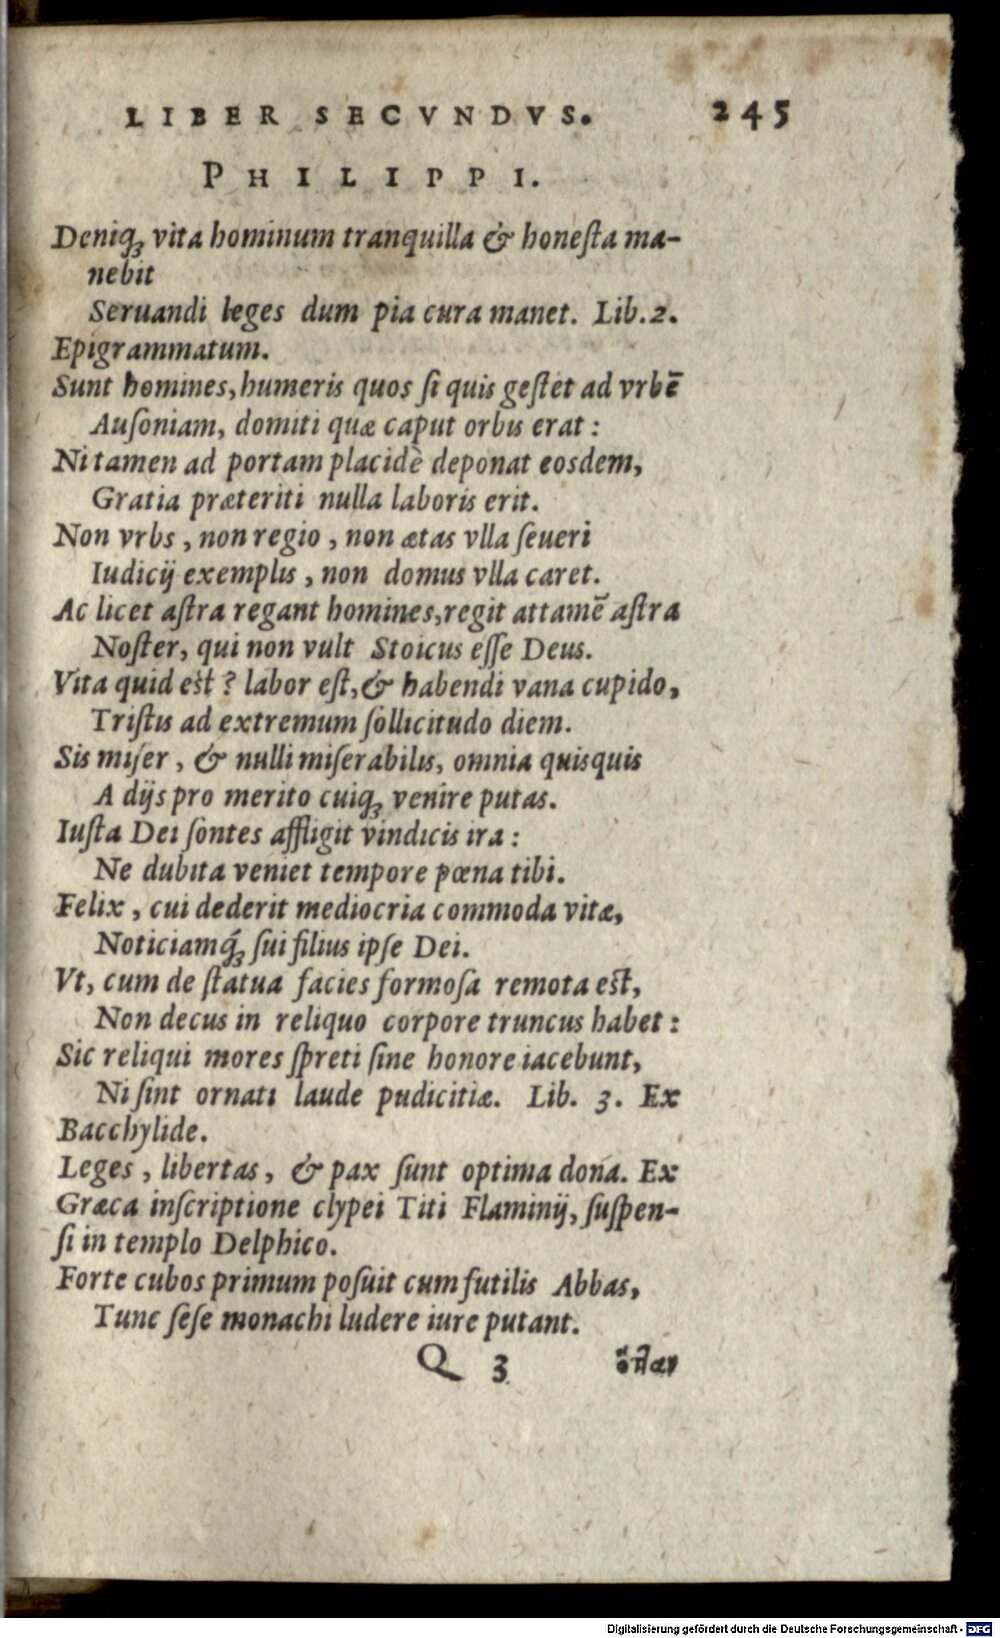 LIBER SECVNDVS. 245
PHILIPPI.
Deniq́ꝫ vita hominum tranquilla & honeſta ma-
nebit
Seruandi leges dum pia cura manet. Lib.2.
Epigrammatum.
Sunt homines, humeris quos ſi quis geſtet ad vrbē
Auſoniam, domiti quæ caput orbis erat:
Ni tamen ad portam placidè deponat eosdem,
Gratia præteriti nulla laboris erit.
Non vrbs, non regio, non ætas vlla ſeueri
Iudicij exemplis, non domus vlla caret.
Ac licet aſtra regant homines, regit attamē aſtra
Noſter, qui non vult Stoicus eſſe Deus.
Vita quid est? labor eſt, & habendi vana cupido,
Triſtis ad extremum ſollicitudo diem.
Sis miſer, & nulli miſerabilis, omnia quisquis
A dijs pro merito cuiqꝫ venire putas.
Iuſta Dei ſontes affligit vindicis ira:
Ne dubita veniet tempore pœna tibi.
Felix, cui dederit mediocria commoda vitæ,
Noticiamq́ꝫ ſui filius ipſe Dei.
Vt, cum de ſtatua facies formoſa remota est,
Non decus in reliquo corpore truncus habet:
Sic reliqui mores ſpreti ſine honore iacebunt,
Ni ſint ornati laude pudicitiæ. Lib. 3. Ex
Bacchylide.
Leges, libertas, & pax ſunt optima dona. Ex
Græca inſcriptione clypei Titi Flaminij, ſuſpen-
ſi in templo Delphico.
Forte cubos primum poſuit cum futilis Abbas,
Tunc ſeſe monachi ludere iure putant.
Q 3
Digitalisierung gefördert durch die Deutsche Forschungsgemeinschaft - DFG